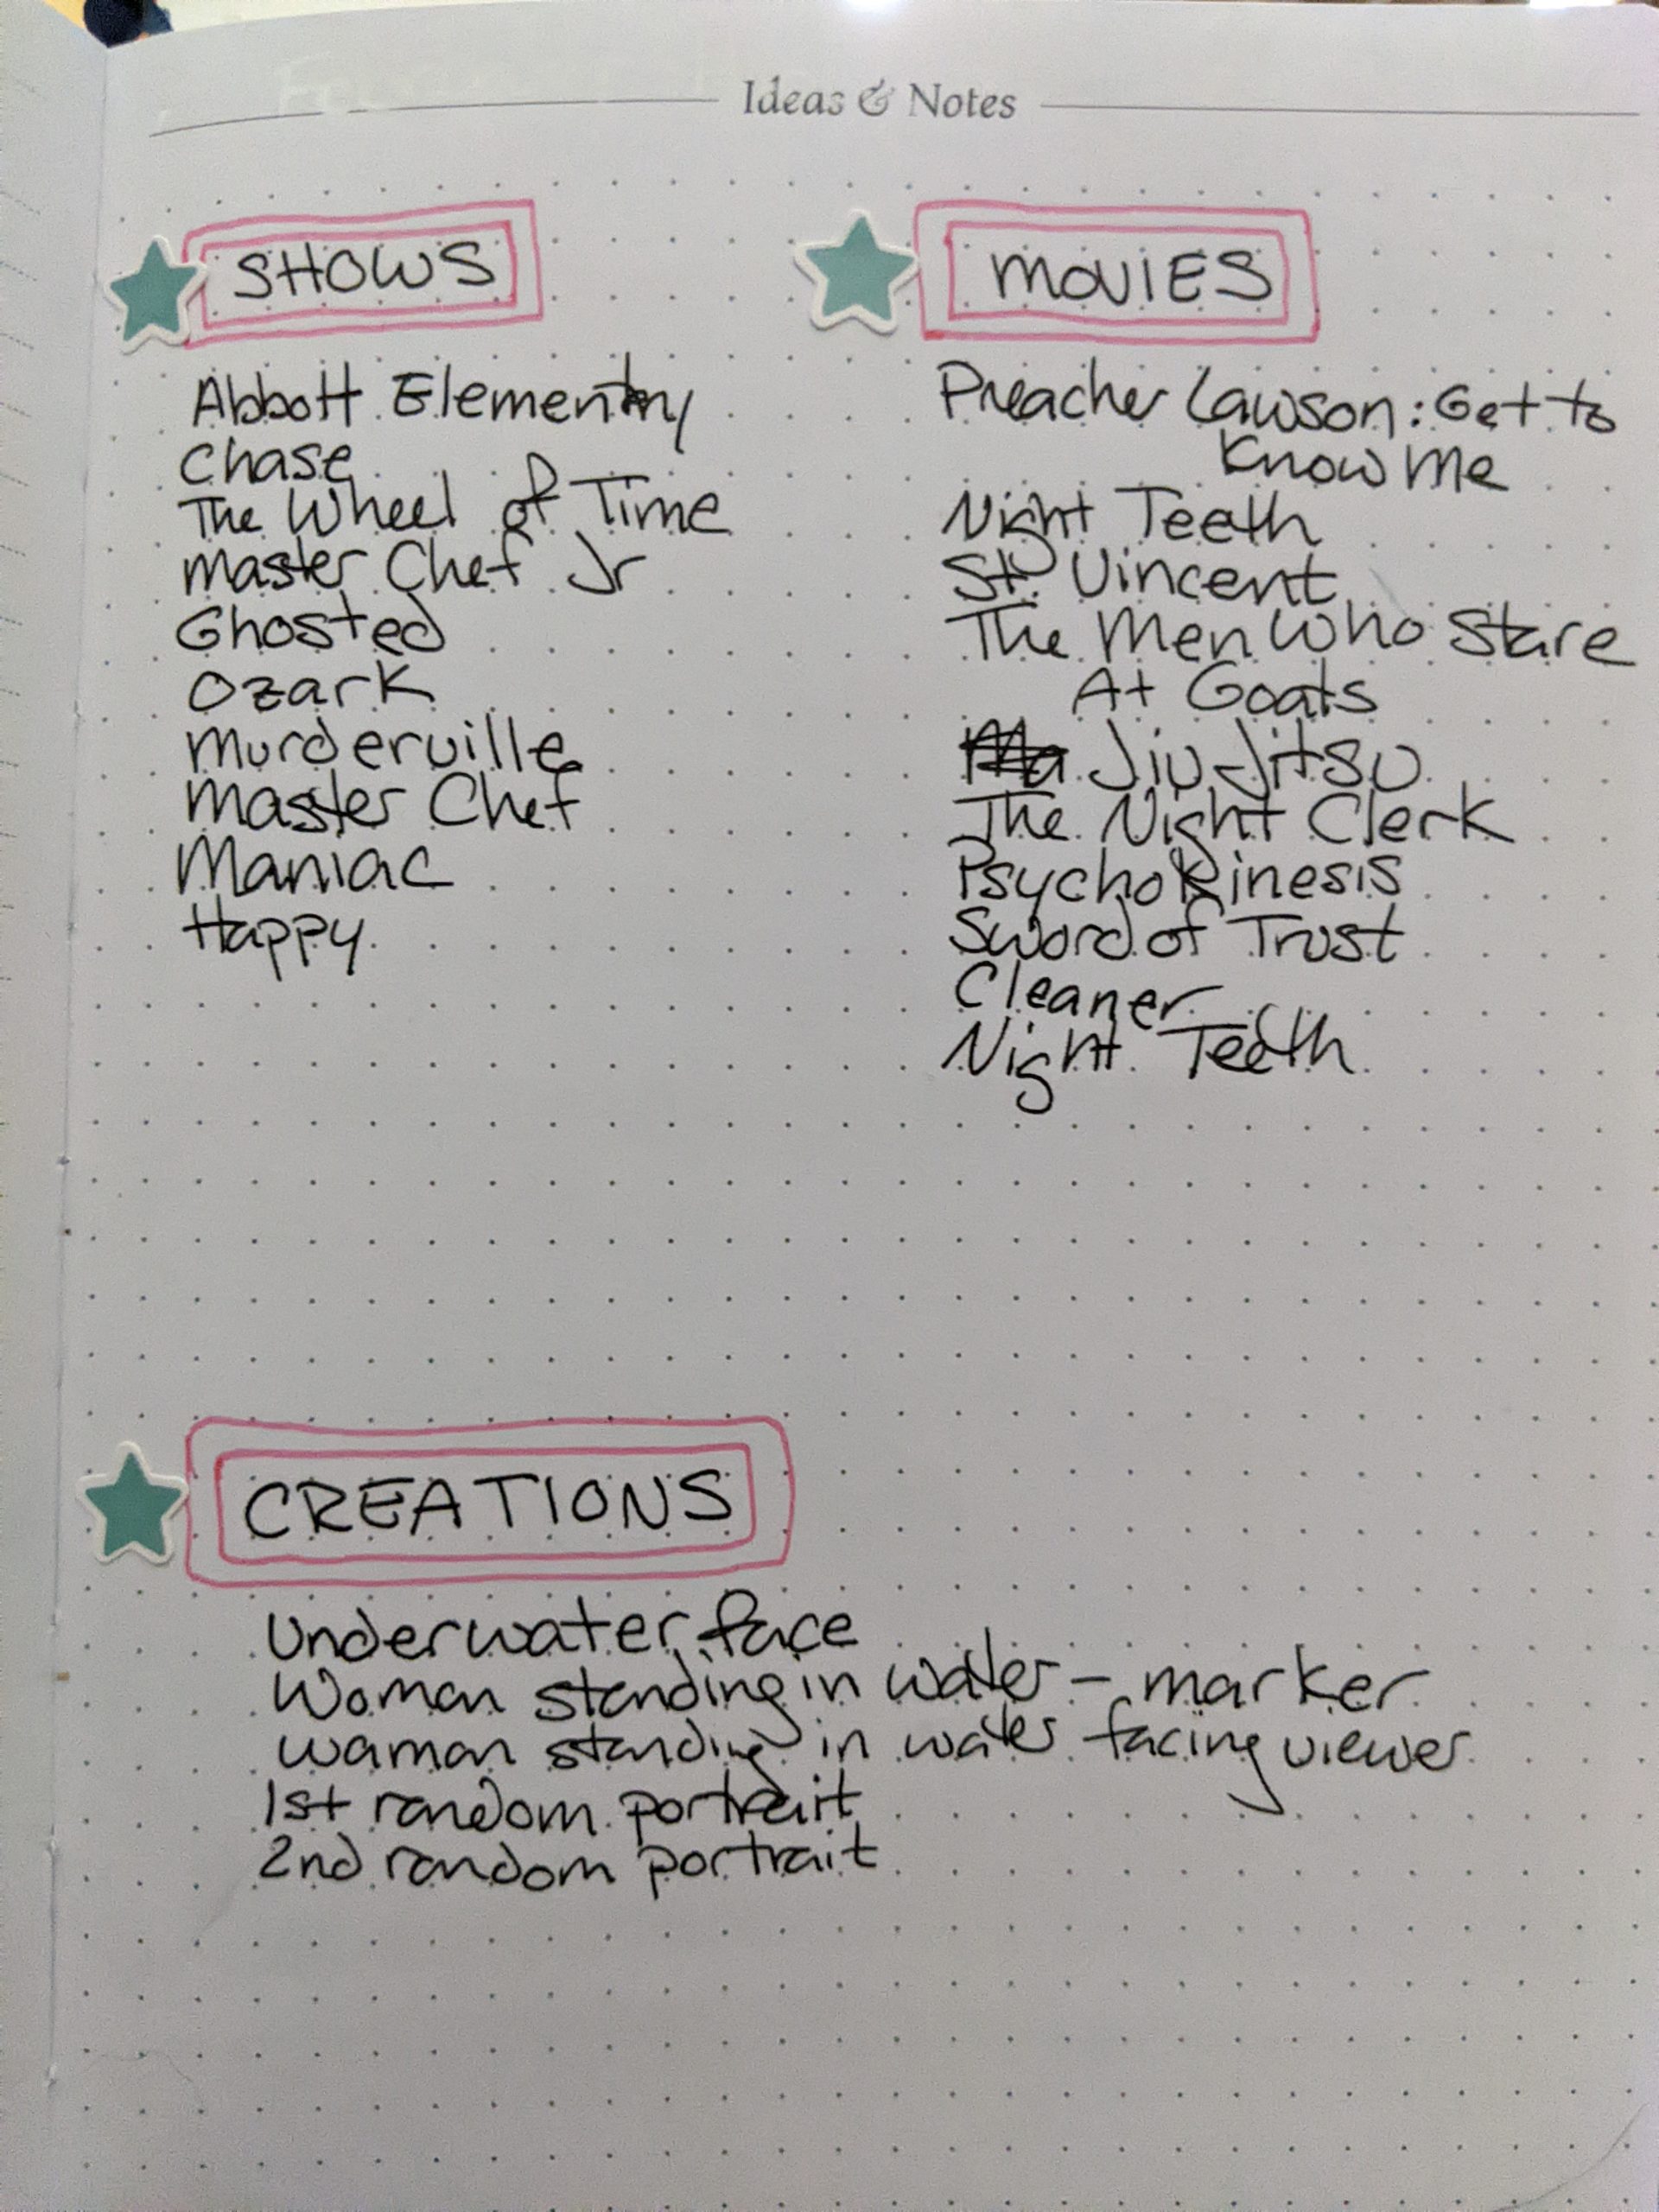 Ideas & Notes
SHOWS
Abbott Elementry
Chase
The Wheel of Time
Master Chef Jr
Ghosted
Ozark
Murderville
Master Chef
Maniac
Happy
MOVIES
Preacher Lawson: Get to
Know Me
Night Teeth
St. Vincent
The Men Who Stare
At Goats
Jiu-Jitsu
The Night Clerk
Psychokinesis
Sword of Trust
Cleaner
Night Teeth
CREATIONS
Underwater face
Woman standing in water - marker
waman standing in water facing viewer
1st random portrait
2nd random portrait